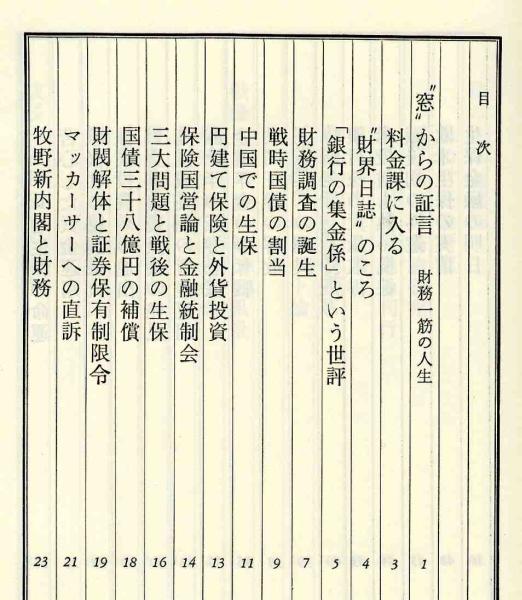 目次
〝窓〟からの証言 財務一筋の人生 1
料金課に入る 3
〝財界日誌〟のころ 4
「銀行の集金係」という世評 5
財務調査の誕生 7
戦時国債の割当 9
中国での生保 11
円建て保険と外貨投資 13
保険国営論と金融統制会 14
三大問題と戦後の生保 16
国債三十八億円の補償 18
財閥解体と証券保有制限令 19
マッカーサーへの直訴 21
牧野新内閣と財務 23